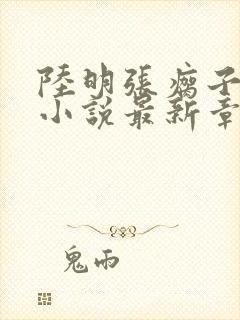 陸明張瘸子
小說最新章
鬼雨